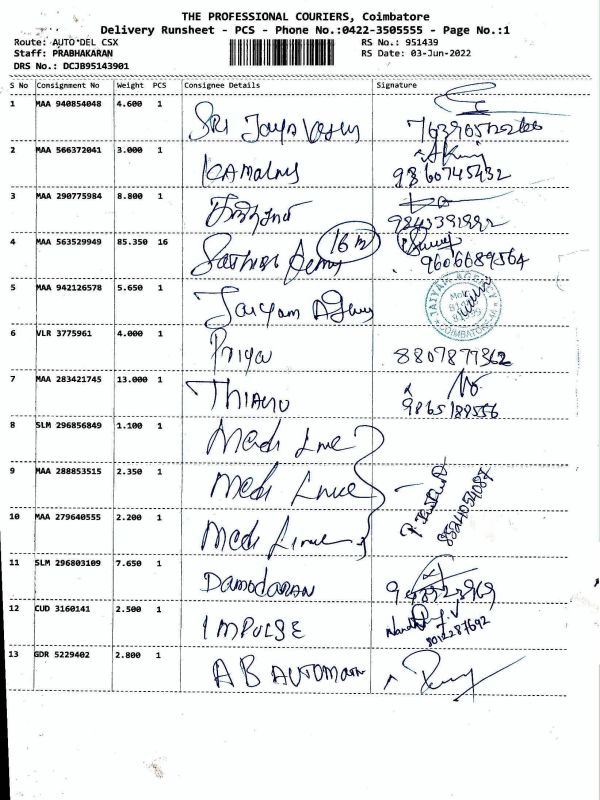 THE PROFESSIONAL COURIERS, Coimbatore
Delivery Runsheet - PCS - Phone No.:0422-3505555 - Page No.:1
Route: AUTO DEL CSX RS No.: 951439
Staff: PRABHAKARAN RS Date: 03-Jun-2022
DRS No.: DCJB95143901
S No Consignment No Weight PCS Consignee Details Signature
1 MAA 940854048 4.600 1 SRI Jaya
2 MAA 566372041 3.000 1 KAMALNS 9860745432
3 MAA 290775984 8.800 1
4 MAA 563529949 85.350 16 16 9606689564
5 MAA 942126578 5.650 1 Jaiyam Agency JAIYAM AGENCY COIMBATORE
6 VLR 3775961 4.000 1 Priya 8807877362
7 MAA 283421745 13.000 1 THIANU 9865188556
8 SLM 296856849 1.100 1 Medi Line
9 MAA 288853515 2.350 1 Medi Line
10 MAA 279640555 2.200 1 Medi Line 8524054087
11 SLM 296803109 7.650 1 DAMODARAN
12 CUD 3160141 2.500 1 IMPULSE 8012287692
13 GDR 5229402 2.800 1 AB AUTOMATION